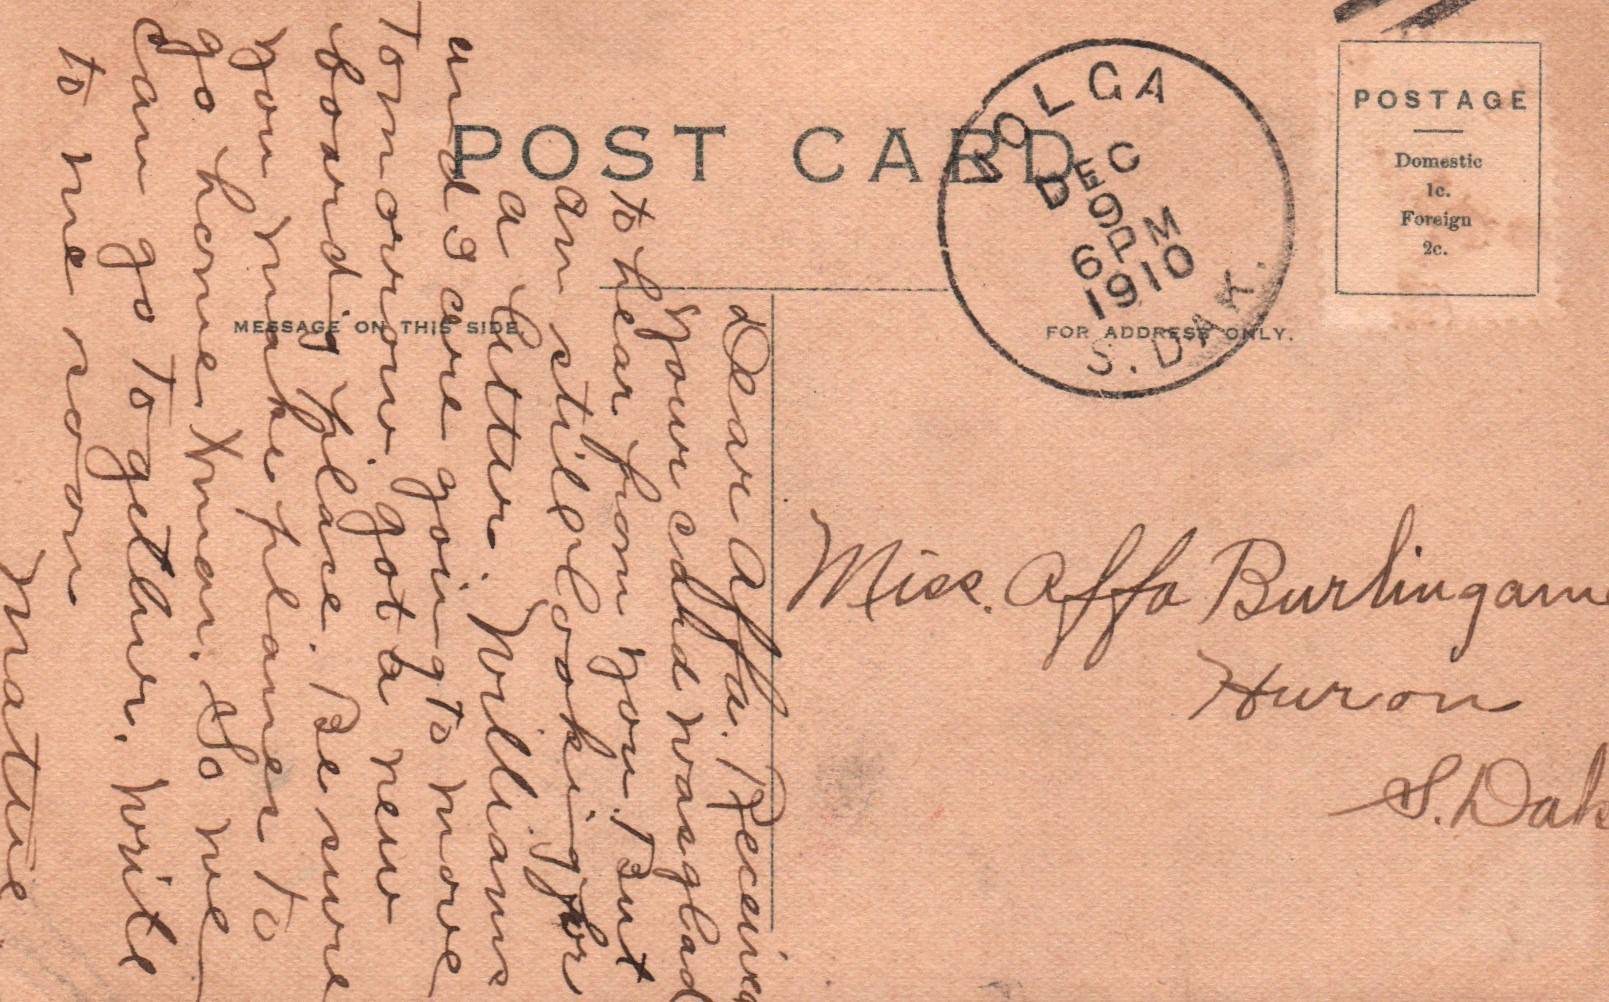 POST CARD
VOLGA
DEC
9
6 PM
1910
S. DAK.
POSTAGE
Domestic
1c.
Foreign
2c.
MESSAGE ON THIS SIDE.
FOR ADDRESS ONLY.
Miss. Affa Burlingame
Huron
S. Dak
Dear Affa. Received
your card was glad
to hear from you. But
am still looking for
a letter. Williams
and I are going to move
Tomorrow. got a new
boarding place. Be sure
you make planes to
go home Xmas. So we
can go together. write
to me soon.
Mattie